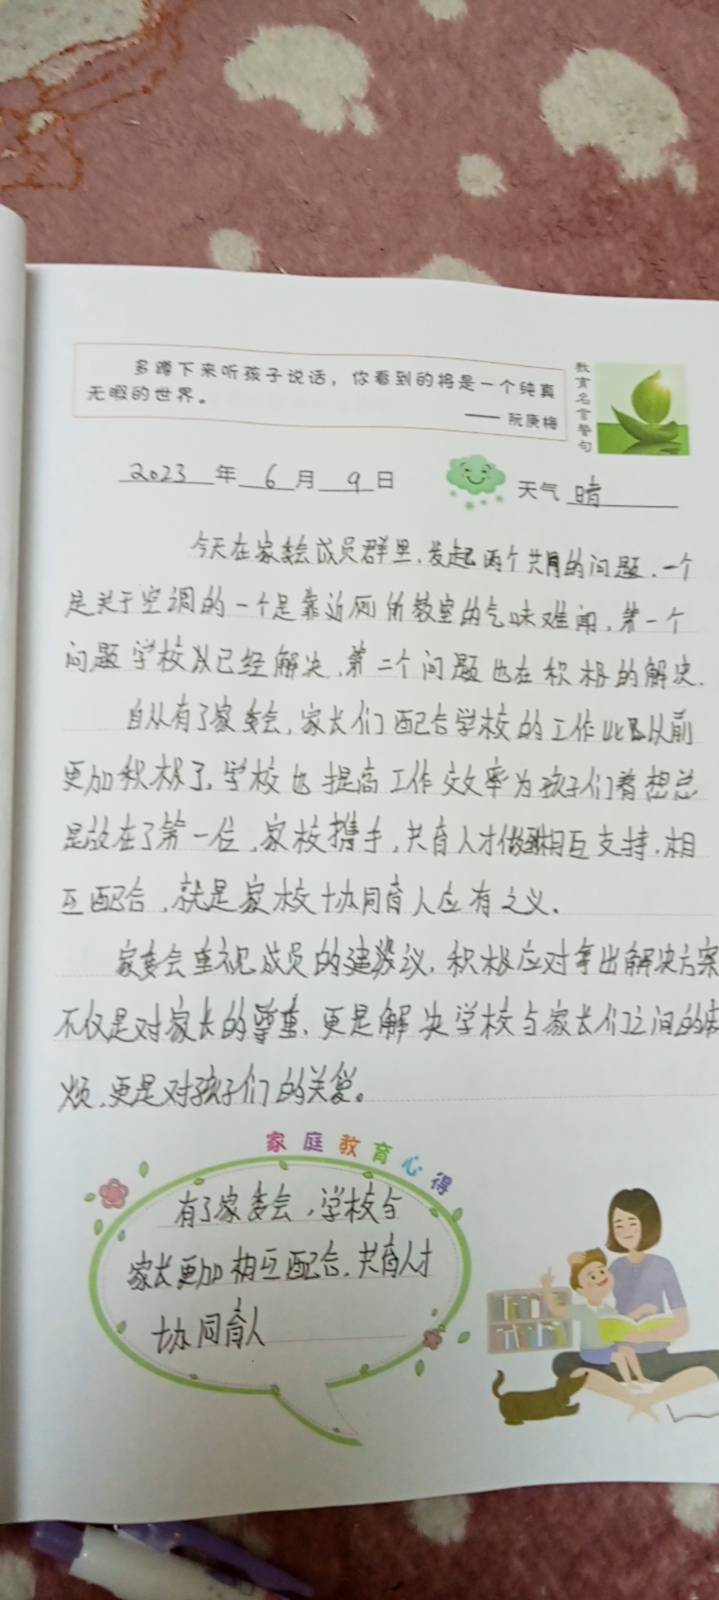 多蹲下来听孩子说话，你看到的将是一个纯真
无暇的世界。
—— 阮庚梅
教育名言警句
2023年6月9日
天气 晴
今天在家委会成员群里，发起两个共同的问题，一个
是关于空调的一个是靠近厕所教室的气味难闻，第一个
问题学校以已经解决，第二个问题也在积极的解决.
自从有了家委会，家长们配合学校的工作比以前
更加积极了，学校也提高工作效率为孩子们着想总
是放在了第一位，家校携手，共育人才做到相互支持，相
互配合，就是家校协同育人应有之义.
家委会重视成员的建议，积极应对拿出解决方案
不仅是对家长的尊重，更是解决学校与家长们之间的
烦，更是对孩子们的关爱。
家庭教育心得
有了家委会，学校与
家长更加相互配合，共育人才
协同育人